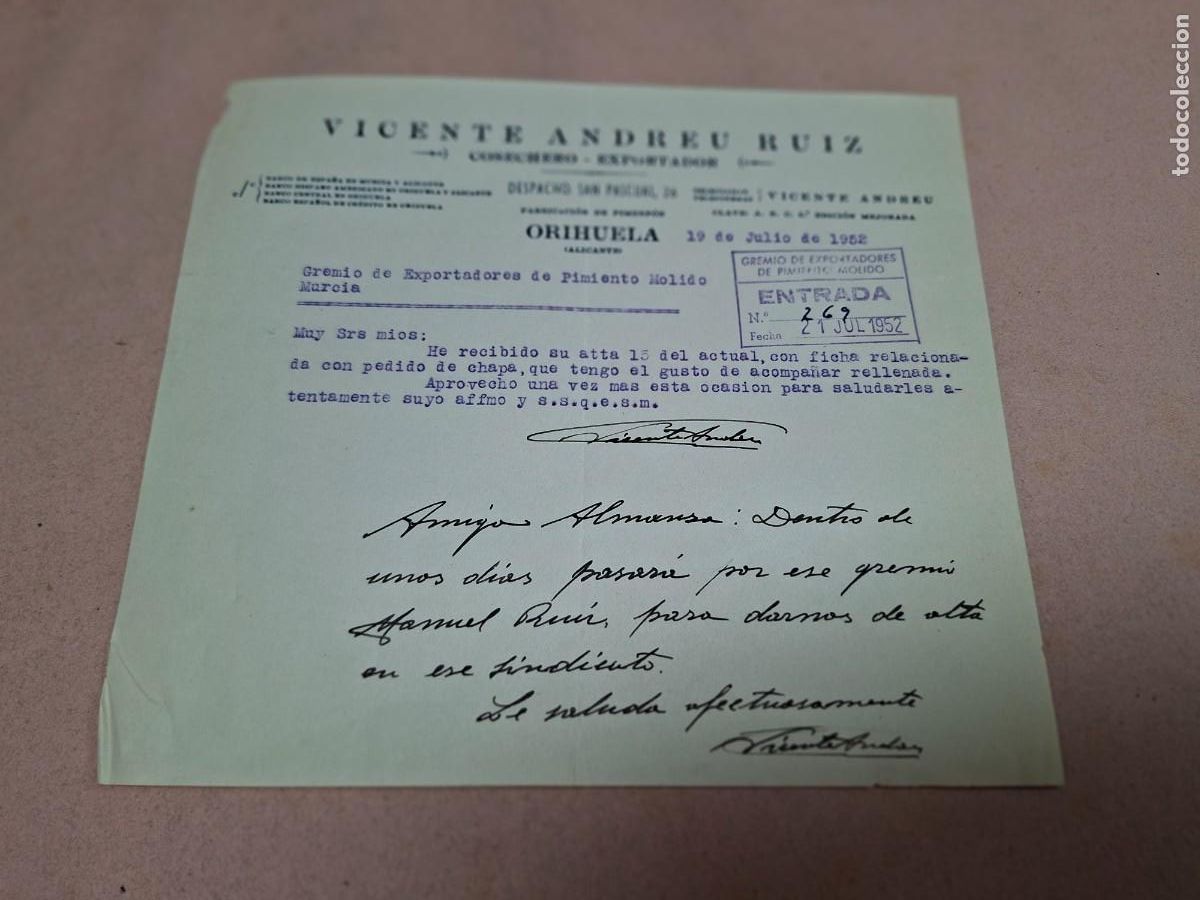 VICENTE ANDREU RUIZ
COSECHERO - EXPORTADOR
BANCO DE ESPAÑA EN MURCIA Y ALICANTE
BANCO HISPANO AMERICANO EN ORIHUELA Y ALICANTE
BANCO CENTRAL EN ORIHUELA
BANCO ESPAÑOL DE CRÉDITO EN ORIHUELA
DESPACHO: SAN PASCUAL,
VICENTE ANDREU
FABRICACIÓN DE PIMENTÓN
CLAVE: A. B. C. 6.ª EDICIÓN MEJORADA
ORIHUELA
(ALICANTE)
19 de Julio de 1952
GREMIO DE EXPORTADORES
DE PIMIENTO MOLIDO
ENTRADA
N.º 269
Fecha 21 JUL 1952
Gremio de Exportadores de Pimiento Molido
Murcia
Muy Srs mios:
He recibido su atta 15 del actual, con ficha relaciona-
da con pedido de chapa, que tengo el gusto de acompañar rellenada.
Aprovecho una vez mas esta ocasion para saludarles a-
tentamente suyo affmo y s.s.q.e.s.m.
Vicente Andreu
Amigo Almansa: Dentro de
unos días pasará por ese gremio
Manuel Ruiz, para darnos de alta
en ese sindicato.
Le saluda afectuosamente
Vicente Andreu
todocoleccion